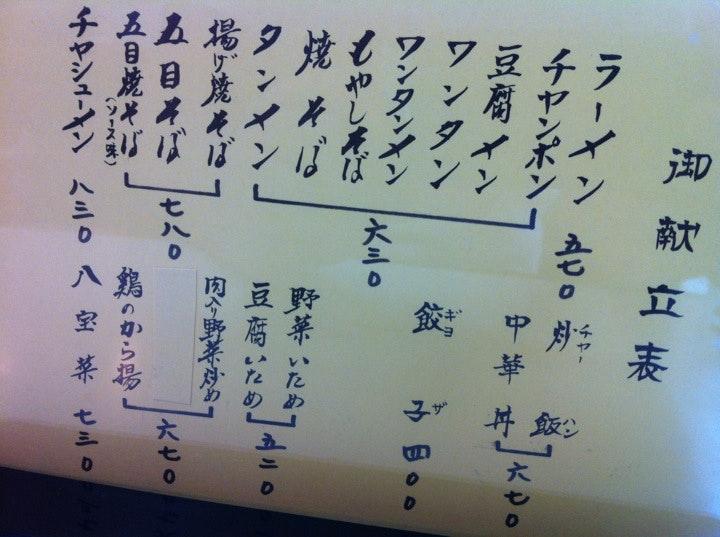 御献立表
ラーメン 五七〇
チャンポン
豆腐メン
ワンタン
ワンタンメン
もやしそば
焼そば
タンメン
六三〇
揚げ焼そば
五目そば
五目焼そば
(ソース味)
七八〇
チャシューメン 八三〇
炒飯
チャーハン
中華丼
六七〇
餃子 四〇〇
ギョザ
野菜いため
豆腐いため
五二〇
肉入り野菜炒め
鶏のから揚
六七〇
八宝菜 七三〇